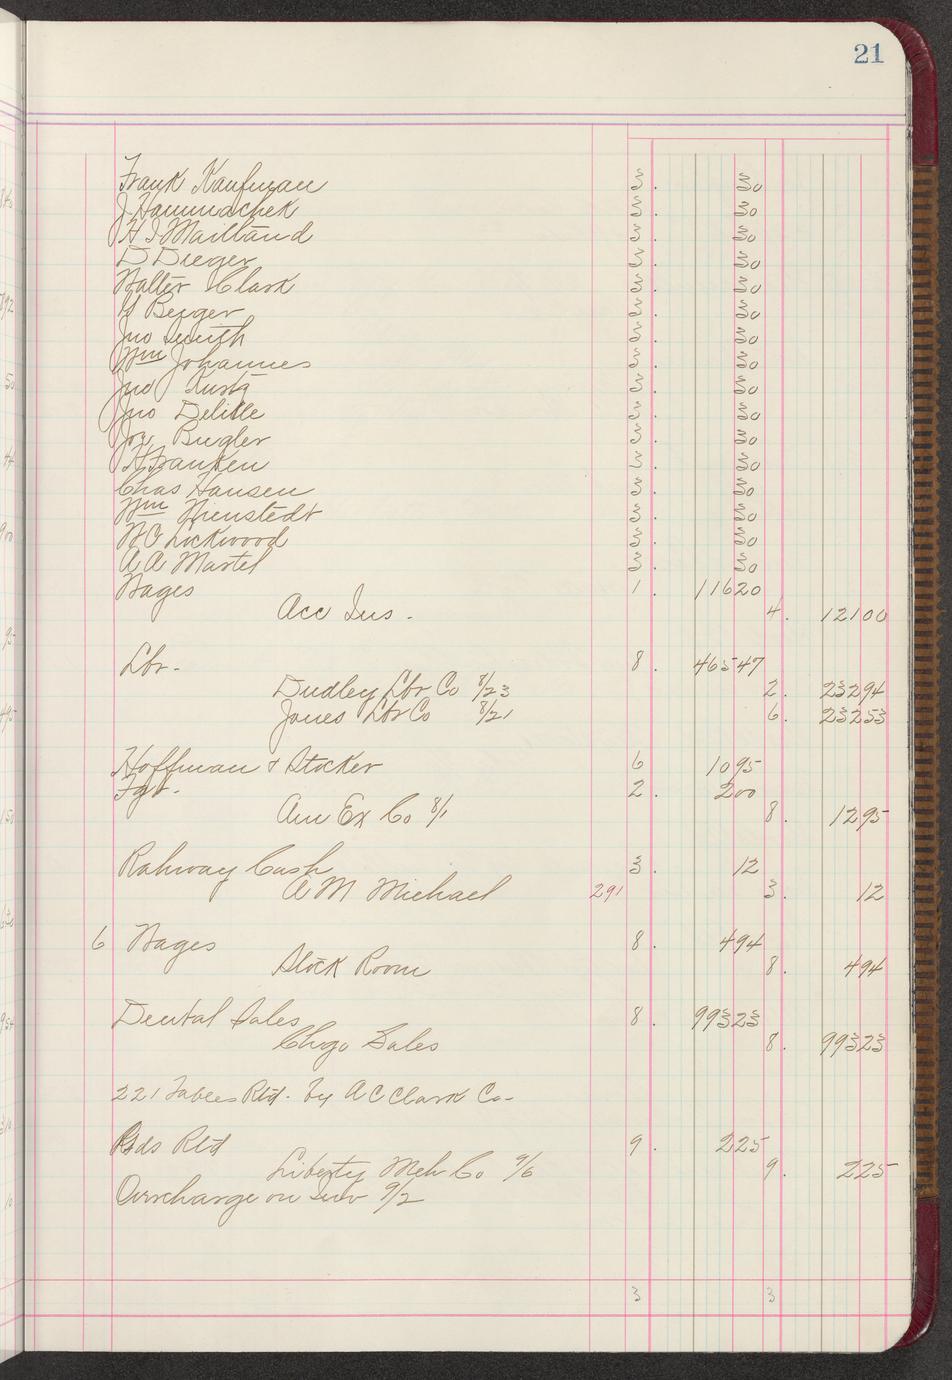 21
Frank Kaufman 3. 30
J Hammachek 3. 30
H I Maitland 3. 30
D Dreger 3. 30
Walter Clark 3. 30
Berger 3. 30
Jno Smith 3. 30
Wm Johannes 3. 30
Jno 3. 30
Jno Delille 3. 30
Jos. Bugler 3. 30
H Franken 3. 30
Chas Hansen 3. 30
Wm Nienstedt 3. 30
W C Lockwood 3. 30
A A Martel 3. 30
Wages 1. 11620
Acc Ins. 4. 12100
Lbr. 8. 46547
Dudley Lbr Co 8/23 2. 23294
Jones Lbr Co 8/21 6. 23253
Hoffman & Stocker 6 1095
Fgt. 2. 200
Am Ex Co 8/1 8. 1295
Rahway Cash 3. 12
A M Michael 291 3. 12
6 Wages 8. 494
Stock Room 8. 494
Dental Sales 8. 99323
Chgo Sales 8. 99323
221 Tables Rtd. by A C Clark Co-
Gds Rtd 9. 225
Liberty Meh Co 9/6 9. 225
Overcharge on Inv 9/2
3 3